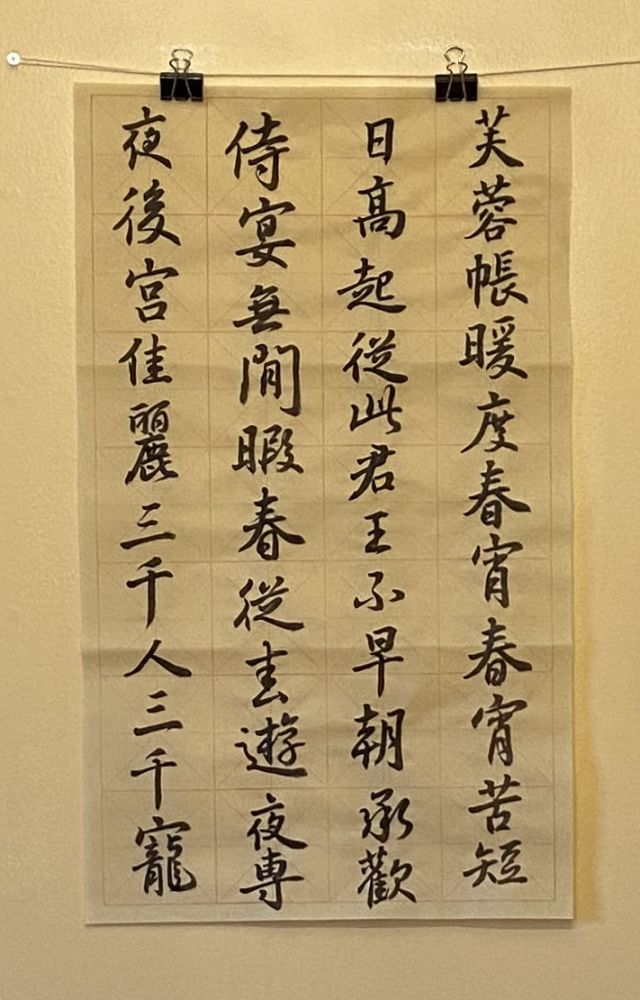 芙蓉帳暖度春宵春宵苦短
日高起從此君王不早朝承歡
侍宴無閒暇春從春遊夜專
夜後宮佳麗三千人三千寵